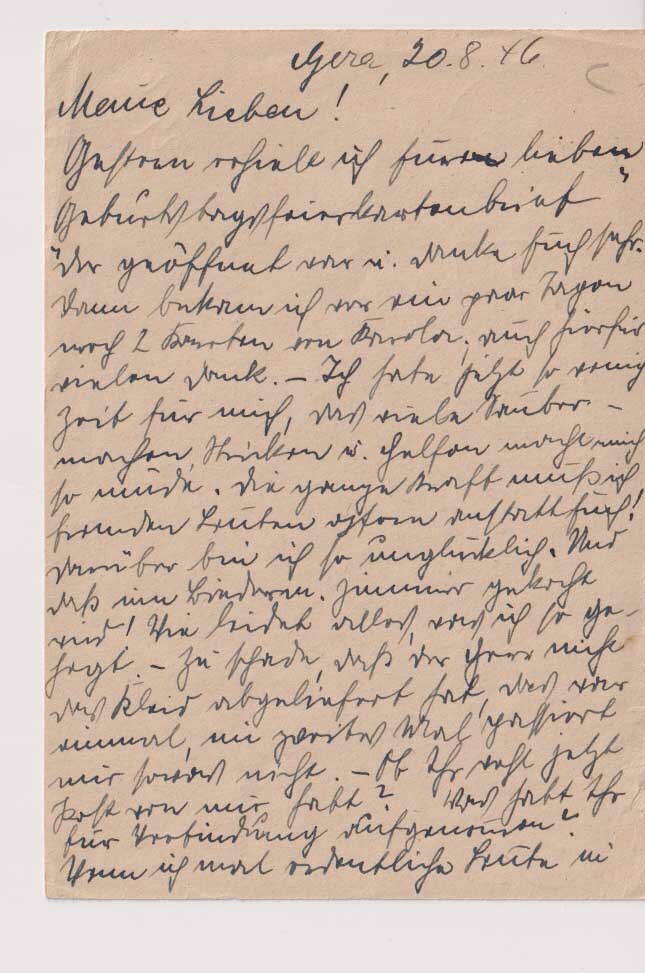 Gera, 20.8.46
Meine Lieben!
Gestern erhielt ich Euren lieben
Geburtstagsfeierkartenbrief"
"der geöffnet war u. danke Euch sehr.
Dann bekam ich vor ein paar Tagen
noch 2 Karten von Karola, auch hierfür
vielen Dank. – Ich habe jetzt so wenig
Zeit für mich, das viele Sauber-
machen, Stricken u. Helfen macht mich
so müde. Die ganze Kraft muß ich
fremden Leuten opfern anstatt Euch!
Darüber bin ich so unglücklich. Und
daß im Biederm. Zimmer gekocht
wird! Wie leidet alles, was ich so ge-
hegt. – Zu schade, daß der Herr nicht
das Kleid abgeliefert hat, das war
einmal, ein zweites Mal passiert
mir sowas nicht. – Ob Ihr wohl jetzt
Post von mir habt? Was habt Ihr
für Verbindung aufgenommen?
Wenn ich mal ordentliche Leute in